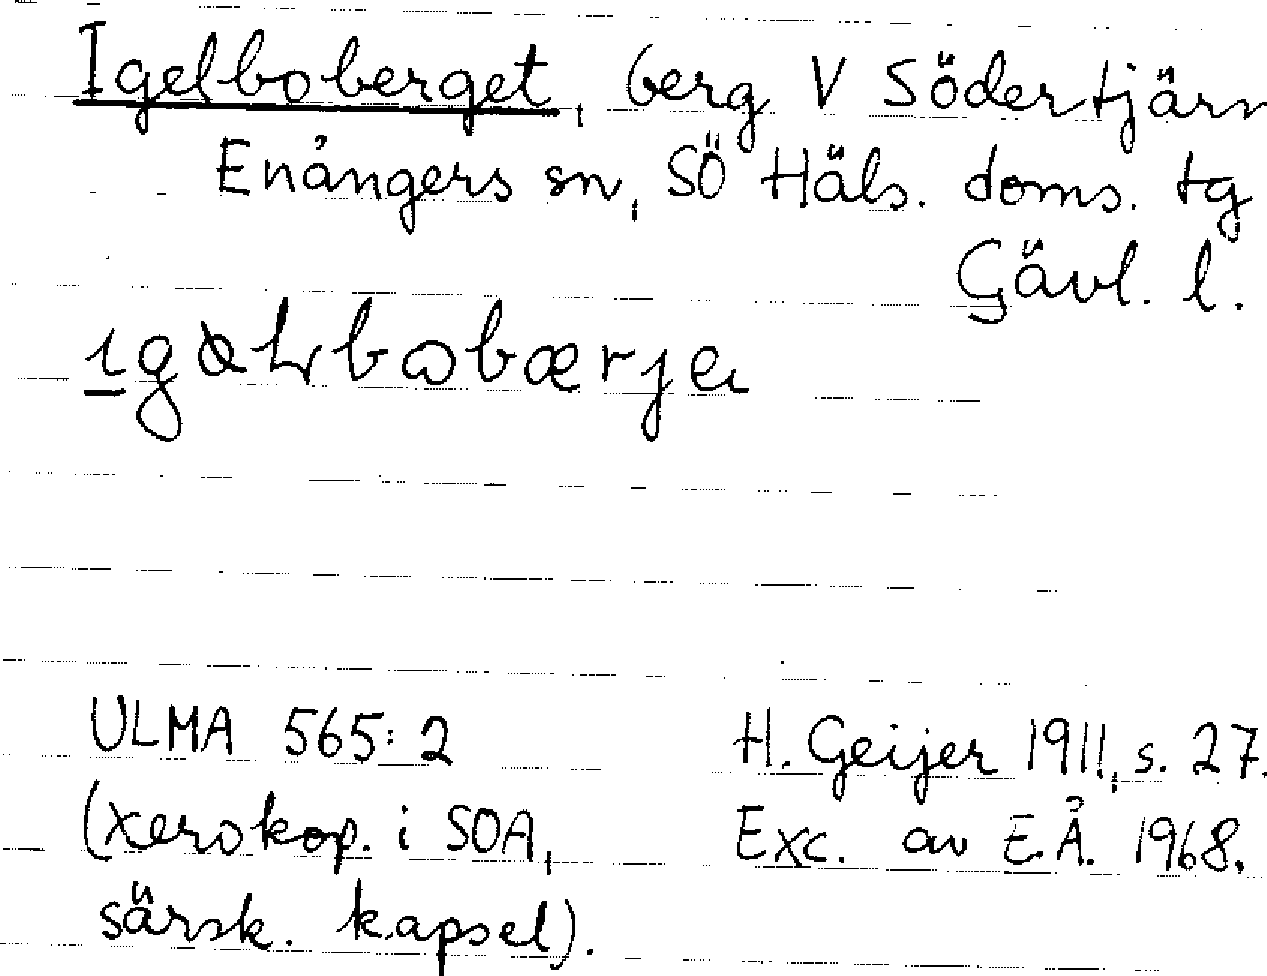 Igelboberget, berg V Södertjärn
Enångers sn, SÖ Häls. doms. tg
Gävl. l.
ULMA 565:2
(xerokop. i SOA,
särsk. kapsel).
H. Geijer 1911, s. 27.
Exc. av E.Å. 1968.